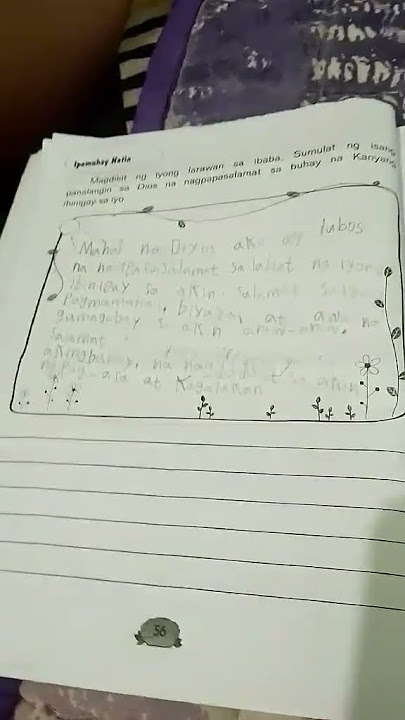 Ipamuhay Natin
Magdikit ng iyong larawan sa ibaba. Sumulat ng isang
panalangin sa Dios na nagpapasalamat sa buhay na Kanyang
ibinigay sa iyo.
Mahal na Diyos ako ay lubos
na na ipapasalamat sa lahat na iyong
ibinigay sa akin salamat sa
Pagmamahal, biyaya, at
gumagabay sa akin araw-araw. na
salamat
aking buhay, na
ng Pag-asa at Kagalakan
56